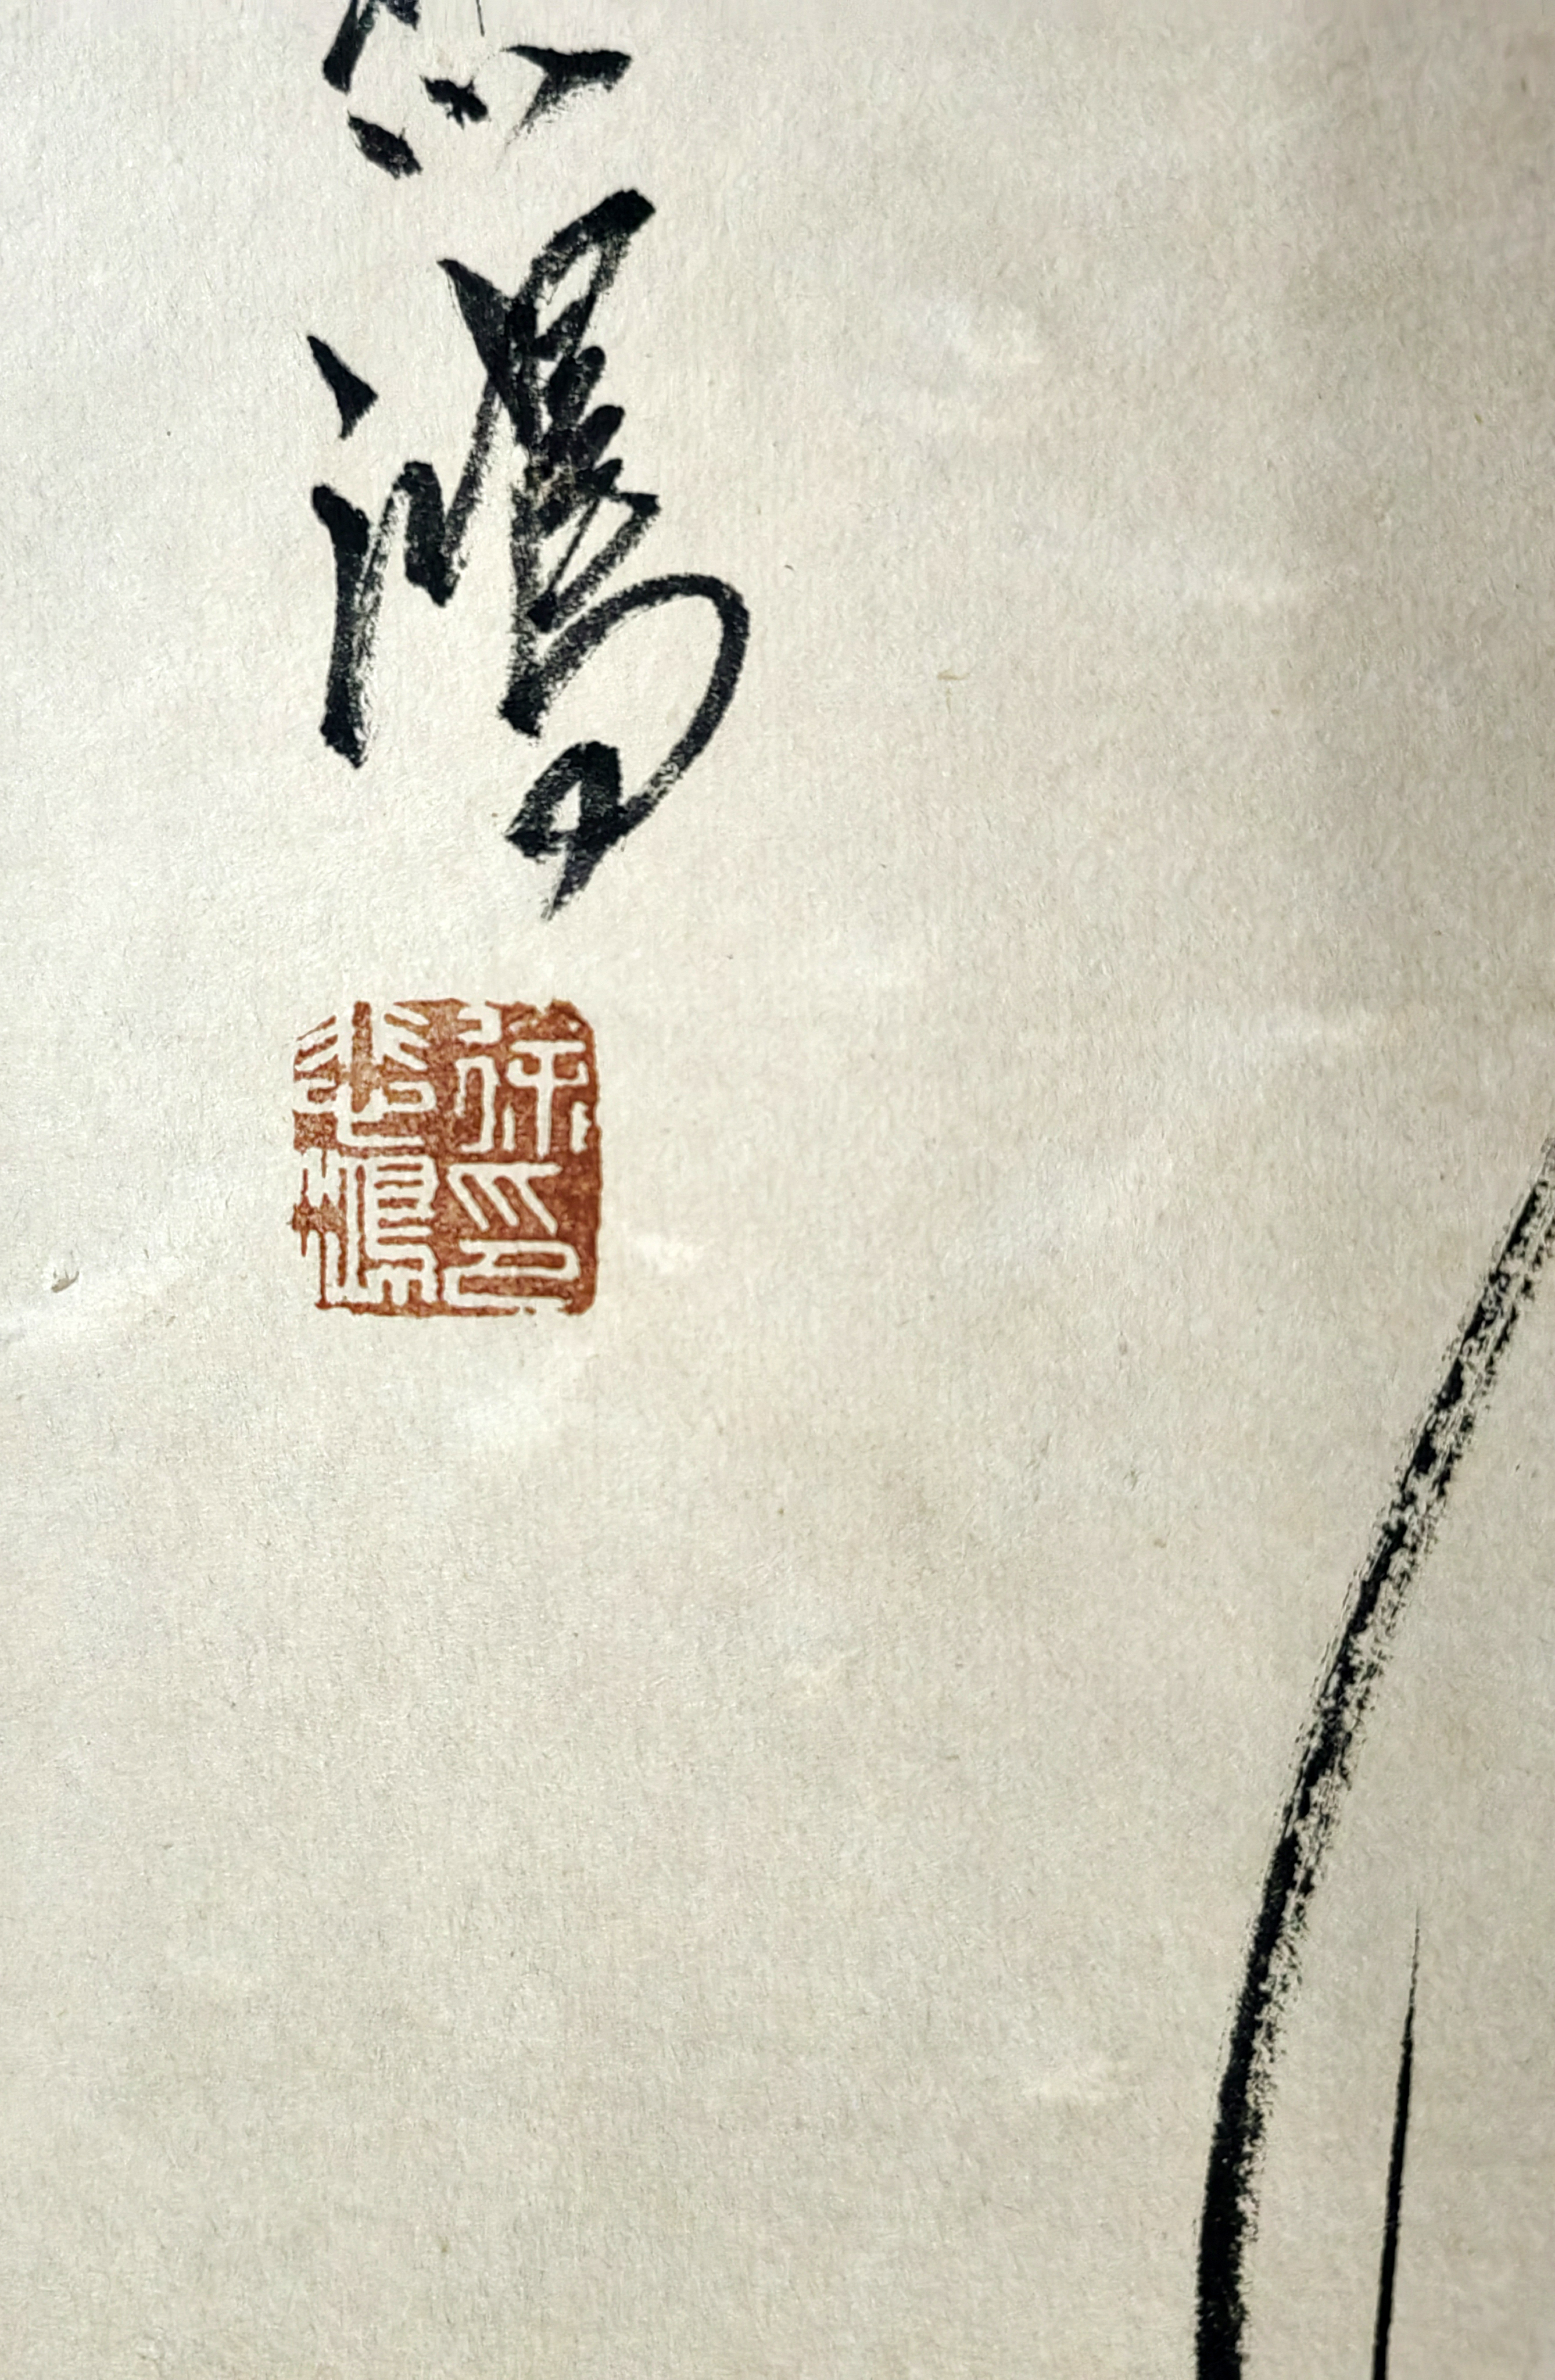 鴻
徐印
悲鴻